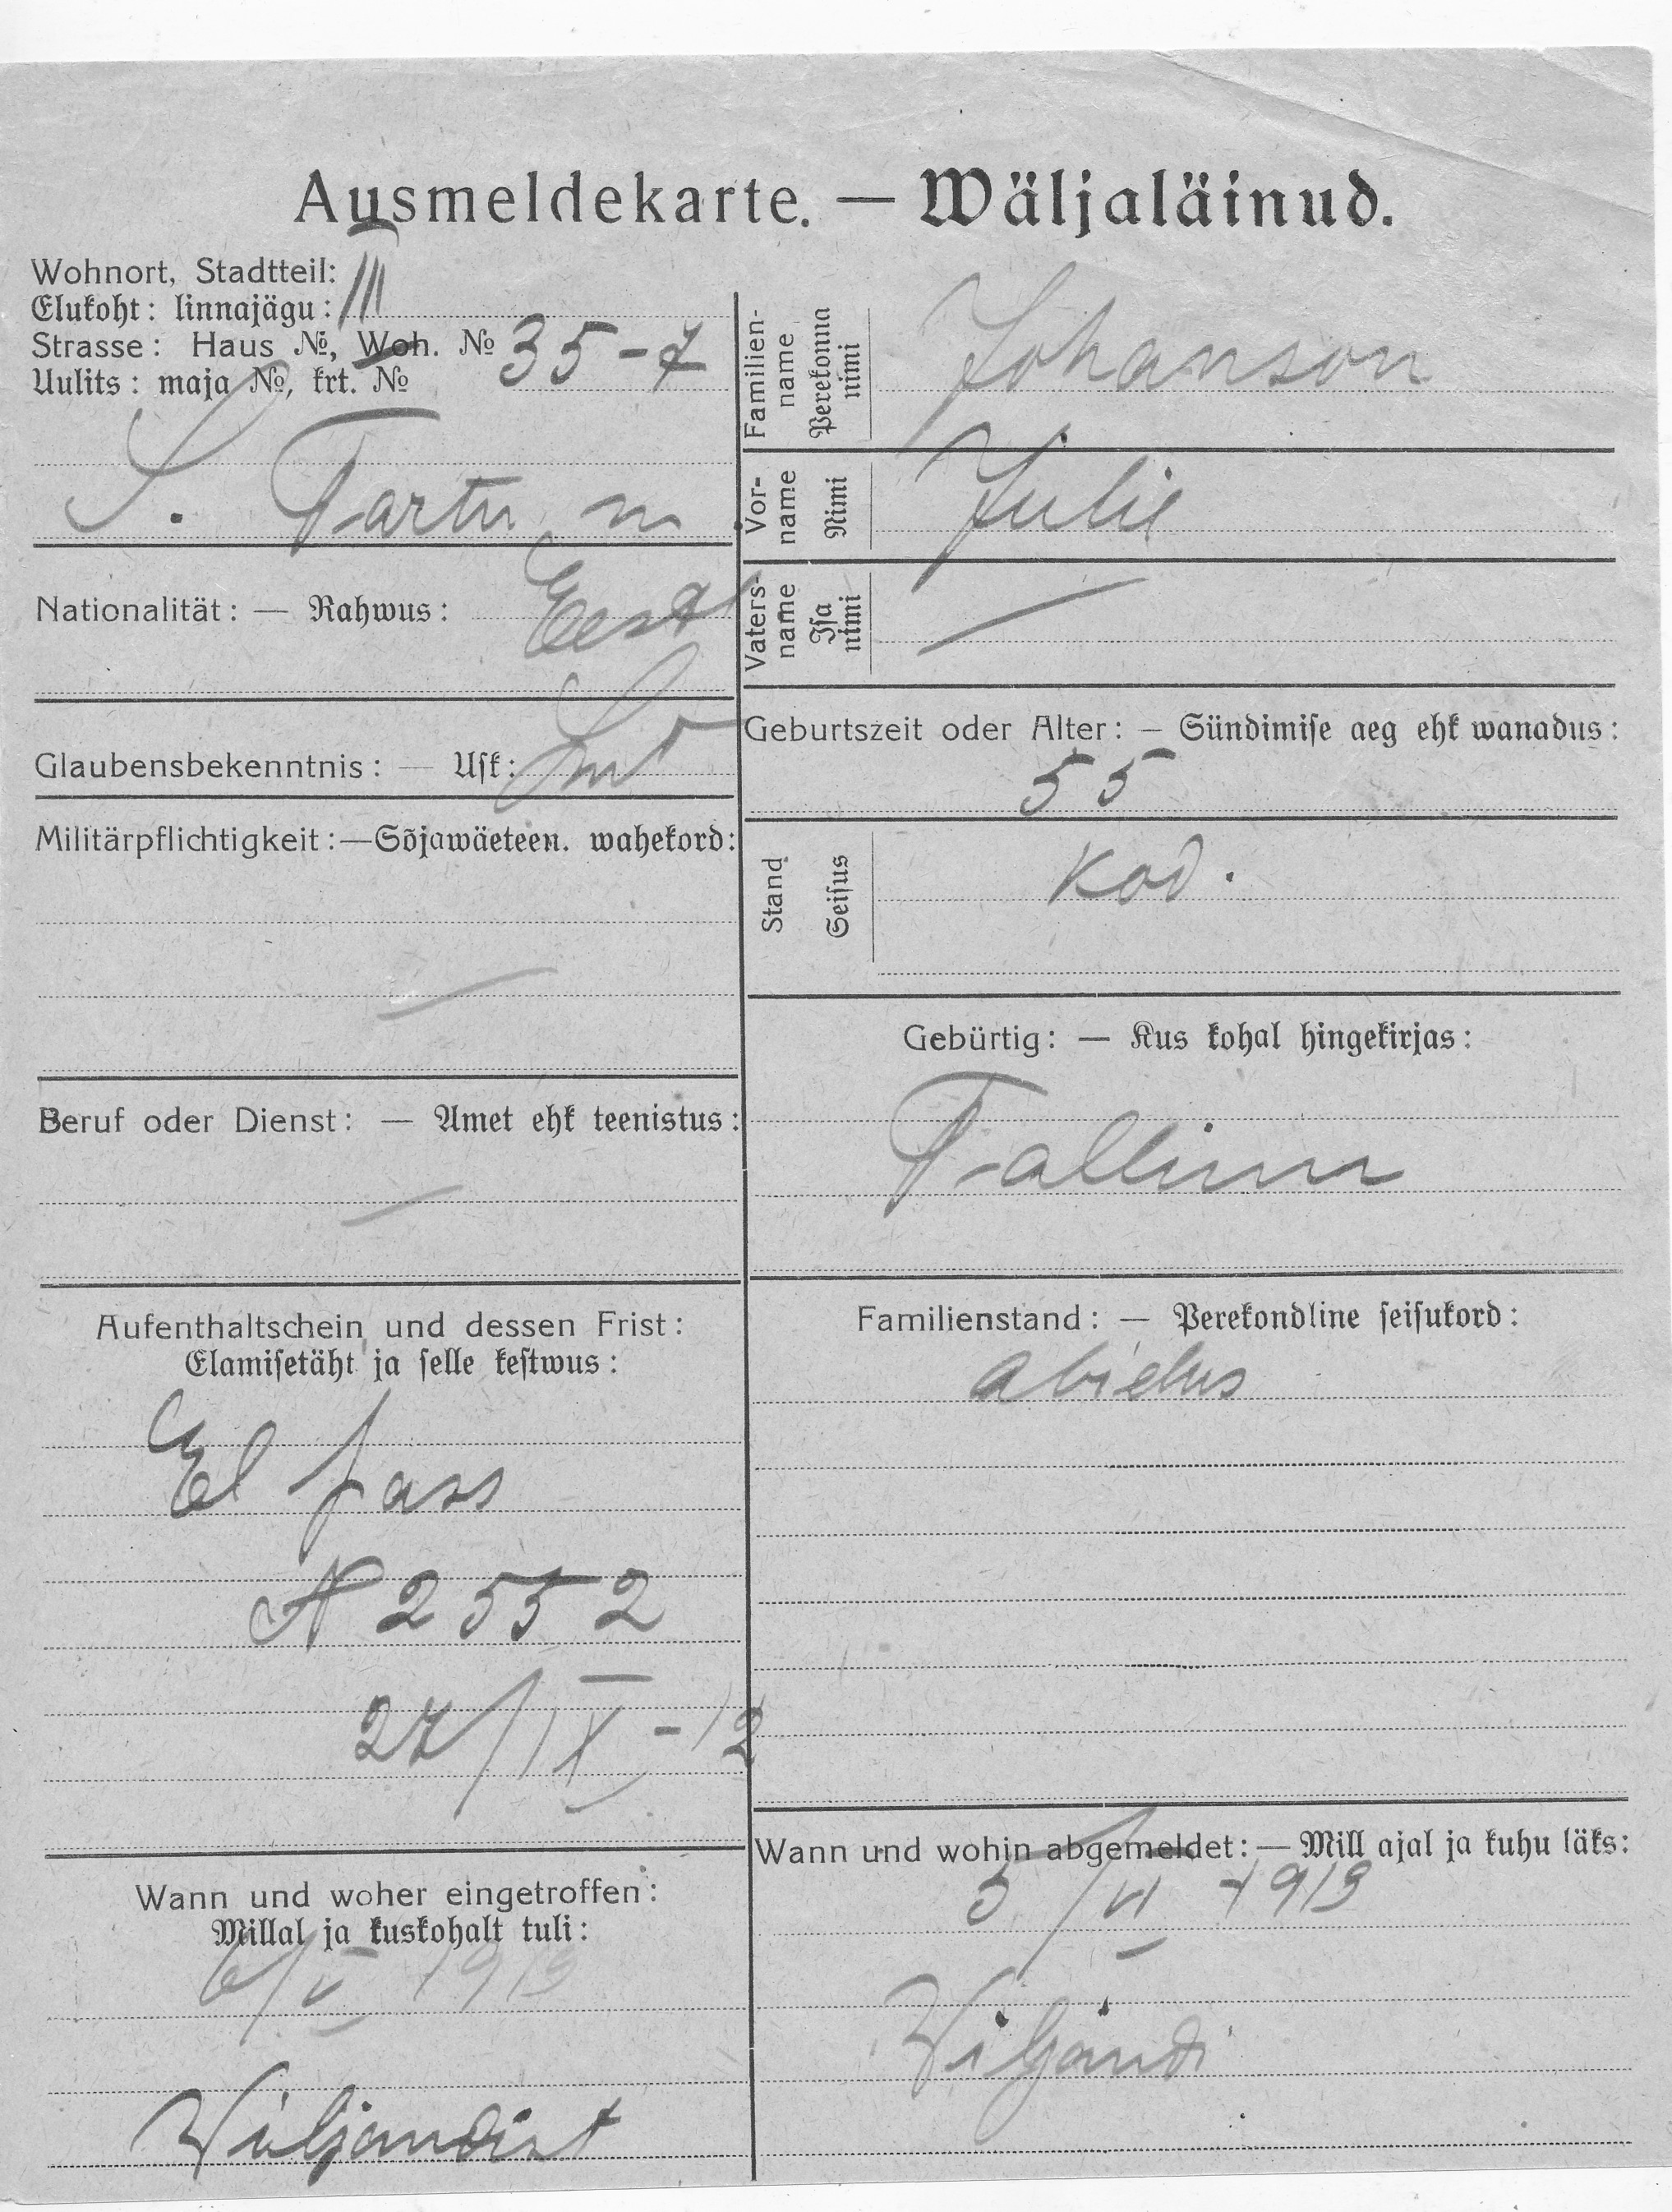 Ausmeldekarte. — Wäljaläinud.
Wohnort, Stadtteil: III
Elukoht: linnajägu:
Strasse: Haus №, Woh. № 35-7
Uulits: maja №, krt. №
S. Tartu m
Nationalität: — Rahwus: Eest
Glaubensbekenntnis: — Usk:
Militärpflichtigkeit:—Sõjawäeteen. wahekord:
—
Beruf oder Dienst: — Amet ehk teenistus:
—
Aufenthaltschein und dessen Frist:
Elamisetäht ja selle kestwus:
El pass
№ 2552
27/IX-12
Wann und woher eingetroffen:
Millal ja kuskohalt tuli:
6/V 1919
Wiljandist
Familien-
name
Perekonna
nimi
Johanson
Vor-
name
Nimi
Julie
Vaters-
name
Isa
nimi
—
Geburtszeit oder Alter: — Sündimise aeg ehk wanadus:
55
Stand
Seisus
Kod.
Gebürtig: — Kus kohal hingekirjas:
Tallinn
Familienstand: — Perekondline seisukord:
abielus
Wann und wohin abgemeldet:—Mill ajal ja kuhu läks:
5/VI 1919
Wiljandi